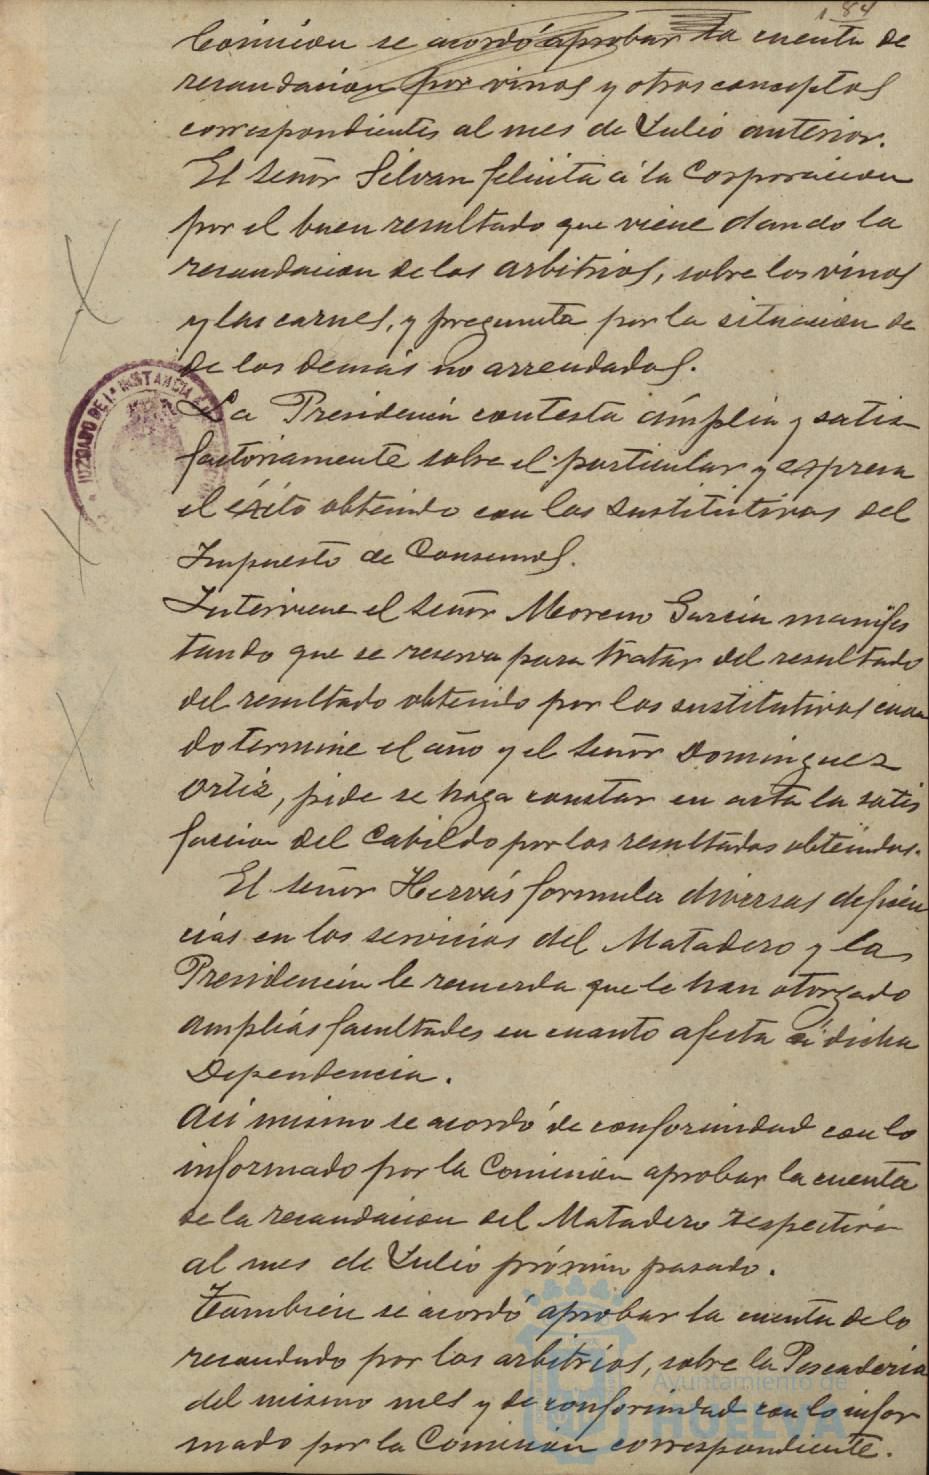 84
Comision se acordó aprobar la cuenta de
recaudacion por vinos y otros conceptos
correspondientes al mes de Julio anterior.
El Señor Silvan felicita á la Corporacion
por el buen resultado que viene dando la
recaudacion de los arbitrios, sobre los vinos
y las carnes, y pregunta por la situacion de
de los demás no arrendados.
La Presidencia contesta ámplia y satis
factoriamente sobre el particular y expresa
el éxito obtenido con los sustitutivos del
Impuesto de Consumos.
Interviene el Señor Moreno García manifes
tando que se reserva para tratar del resultado
del resultado obtenido por los sustitutivos cuan
do termine el año y el Señor Dominguez
Ortiz, pide se haga constar en acta la satis
faccion del Cabildo por los resultados obtenidos.
El Señor Hervás formula diversas deficien
cias en los servicios del Matadero y la
Presidencia le recuerda que le han otorgado
amplias facultades en cuanto afecta á dicha
Dependencia.
Asi mismo se acordó de conformidad con lo
informado por la Comision aprobar la cuenta
de la recaudacion del Matadero respectiva
al mes de Julio próximo pasado.
Tambien se acordó aprobar la cuenta de lo
recaudado por los arbitrios, sobre la Pescaderia
del mismo mes y de conformidad con lo infor
mado por la Comision correspondiente.
JUZGADO DE 1ª INSTANCIA
Ayuntamiento de
HUELVA